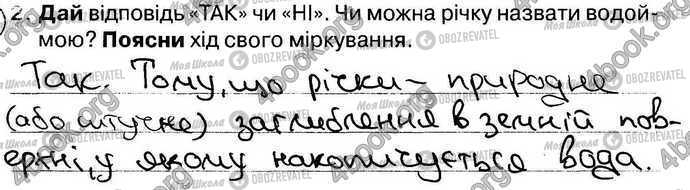 2. Дай відповідь «ТАК» чи «НІ». Чи можна річку назвати водой-
мою? Поясни хід свого міркування.
Так. Тому, що річки - природне
(або штучне) заглиблення в земній пов-
ерхні, у якому накопичується вода.